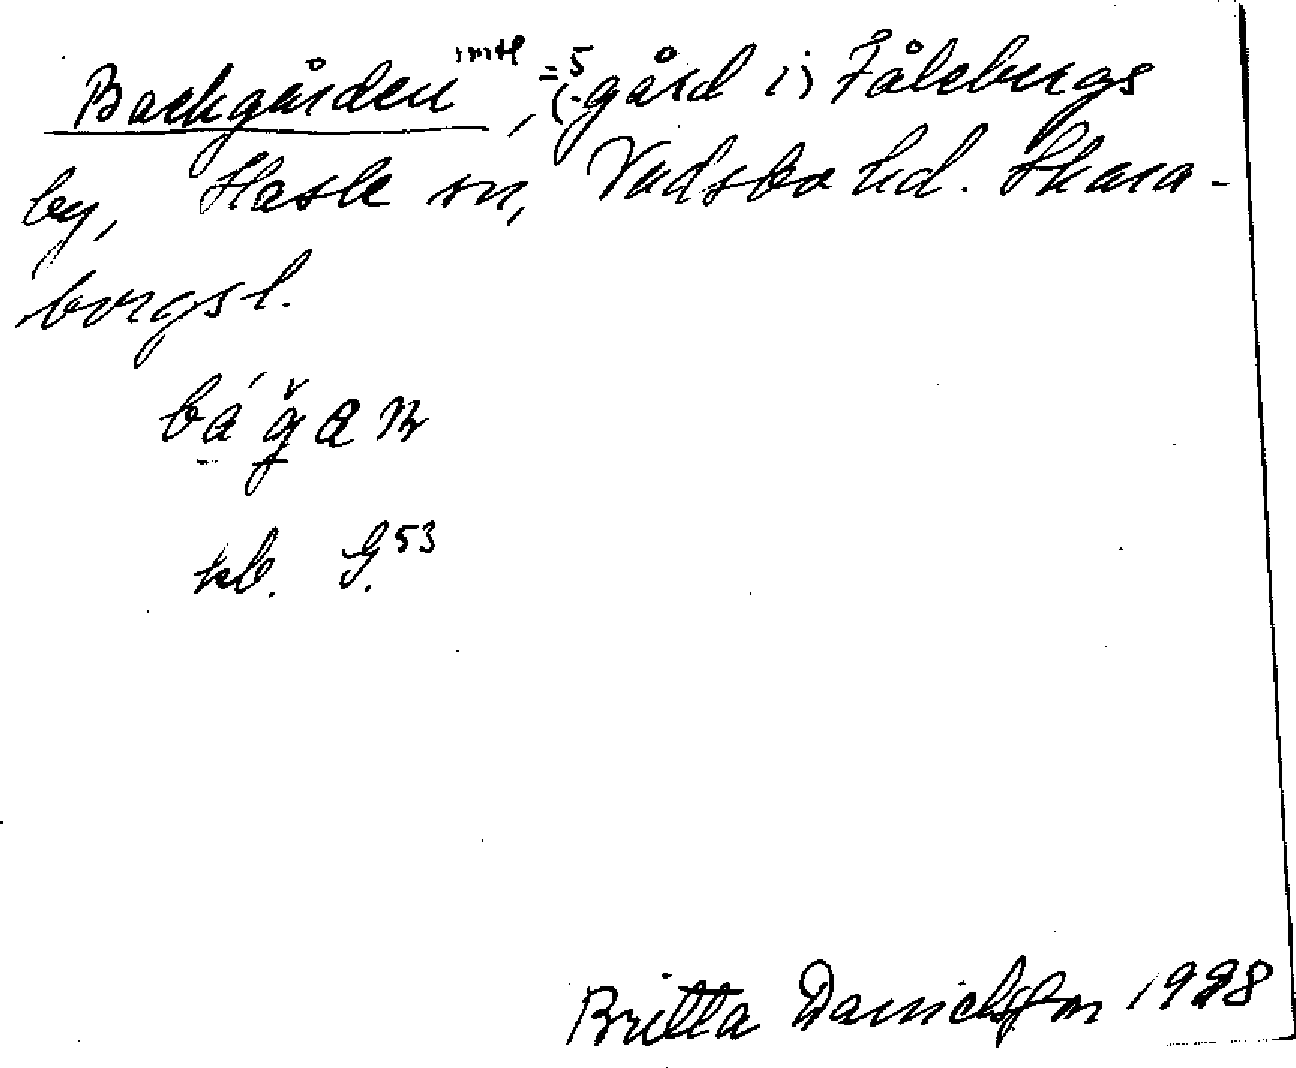 Backgården mtl =5, gård i Fålebergs
by, Hassle sn, Vadsbo hd. Skara-
borgsl.
bágan
kb. G.53
Britta Danielsson 1928